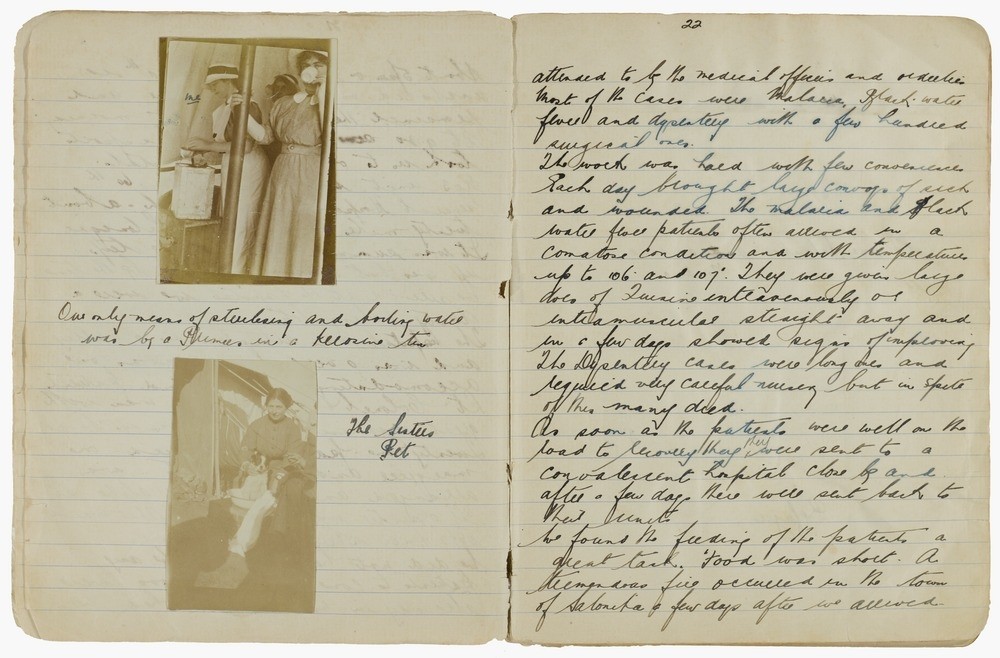 me
Our only means of sterilising and boiling water
was by a Primus in a Kerosine tin
The Sisters
Pet
22
attended to by the medical officers and orderlies
Most of the cases were Malaria, Black water
fever and dysentery with a few hundred
surgical ones.
The work was hard with few conveniences
Each day brought large convoys of sick
and wounded. The malaria and Black
water fever patients often arrived in a
comatose condition and with temperatures
up to 106 and 107°. They were given large
does of Quinine intravenously or
intramuscular straight away and
in a few days showed signs of improving
The Dysentery cases were long ones and
required very careful nursing but in spite
of this many died.
As soon as the patients were well on the
road to recovery they they were sent to a
convalescent hospital close by and
after a few days there were sent back to
their units
We found the feeding of the patients a
great task. Food was short. A
tremendous fire occurred in the town
of Salonika a few days after we arrived.